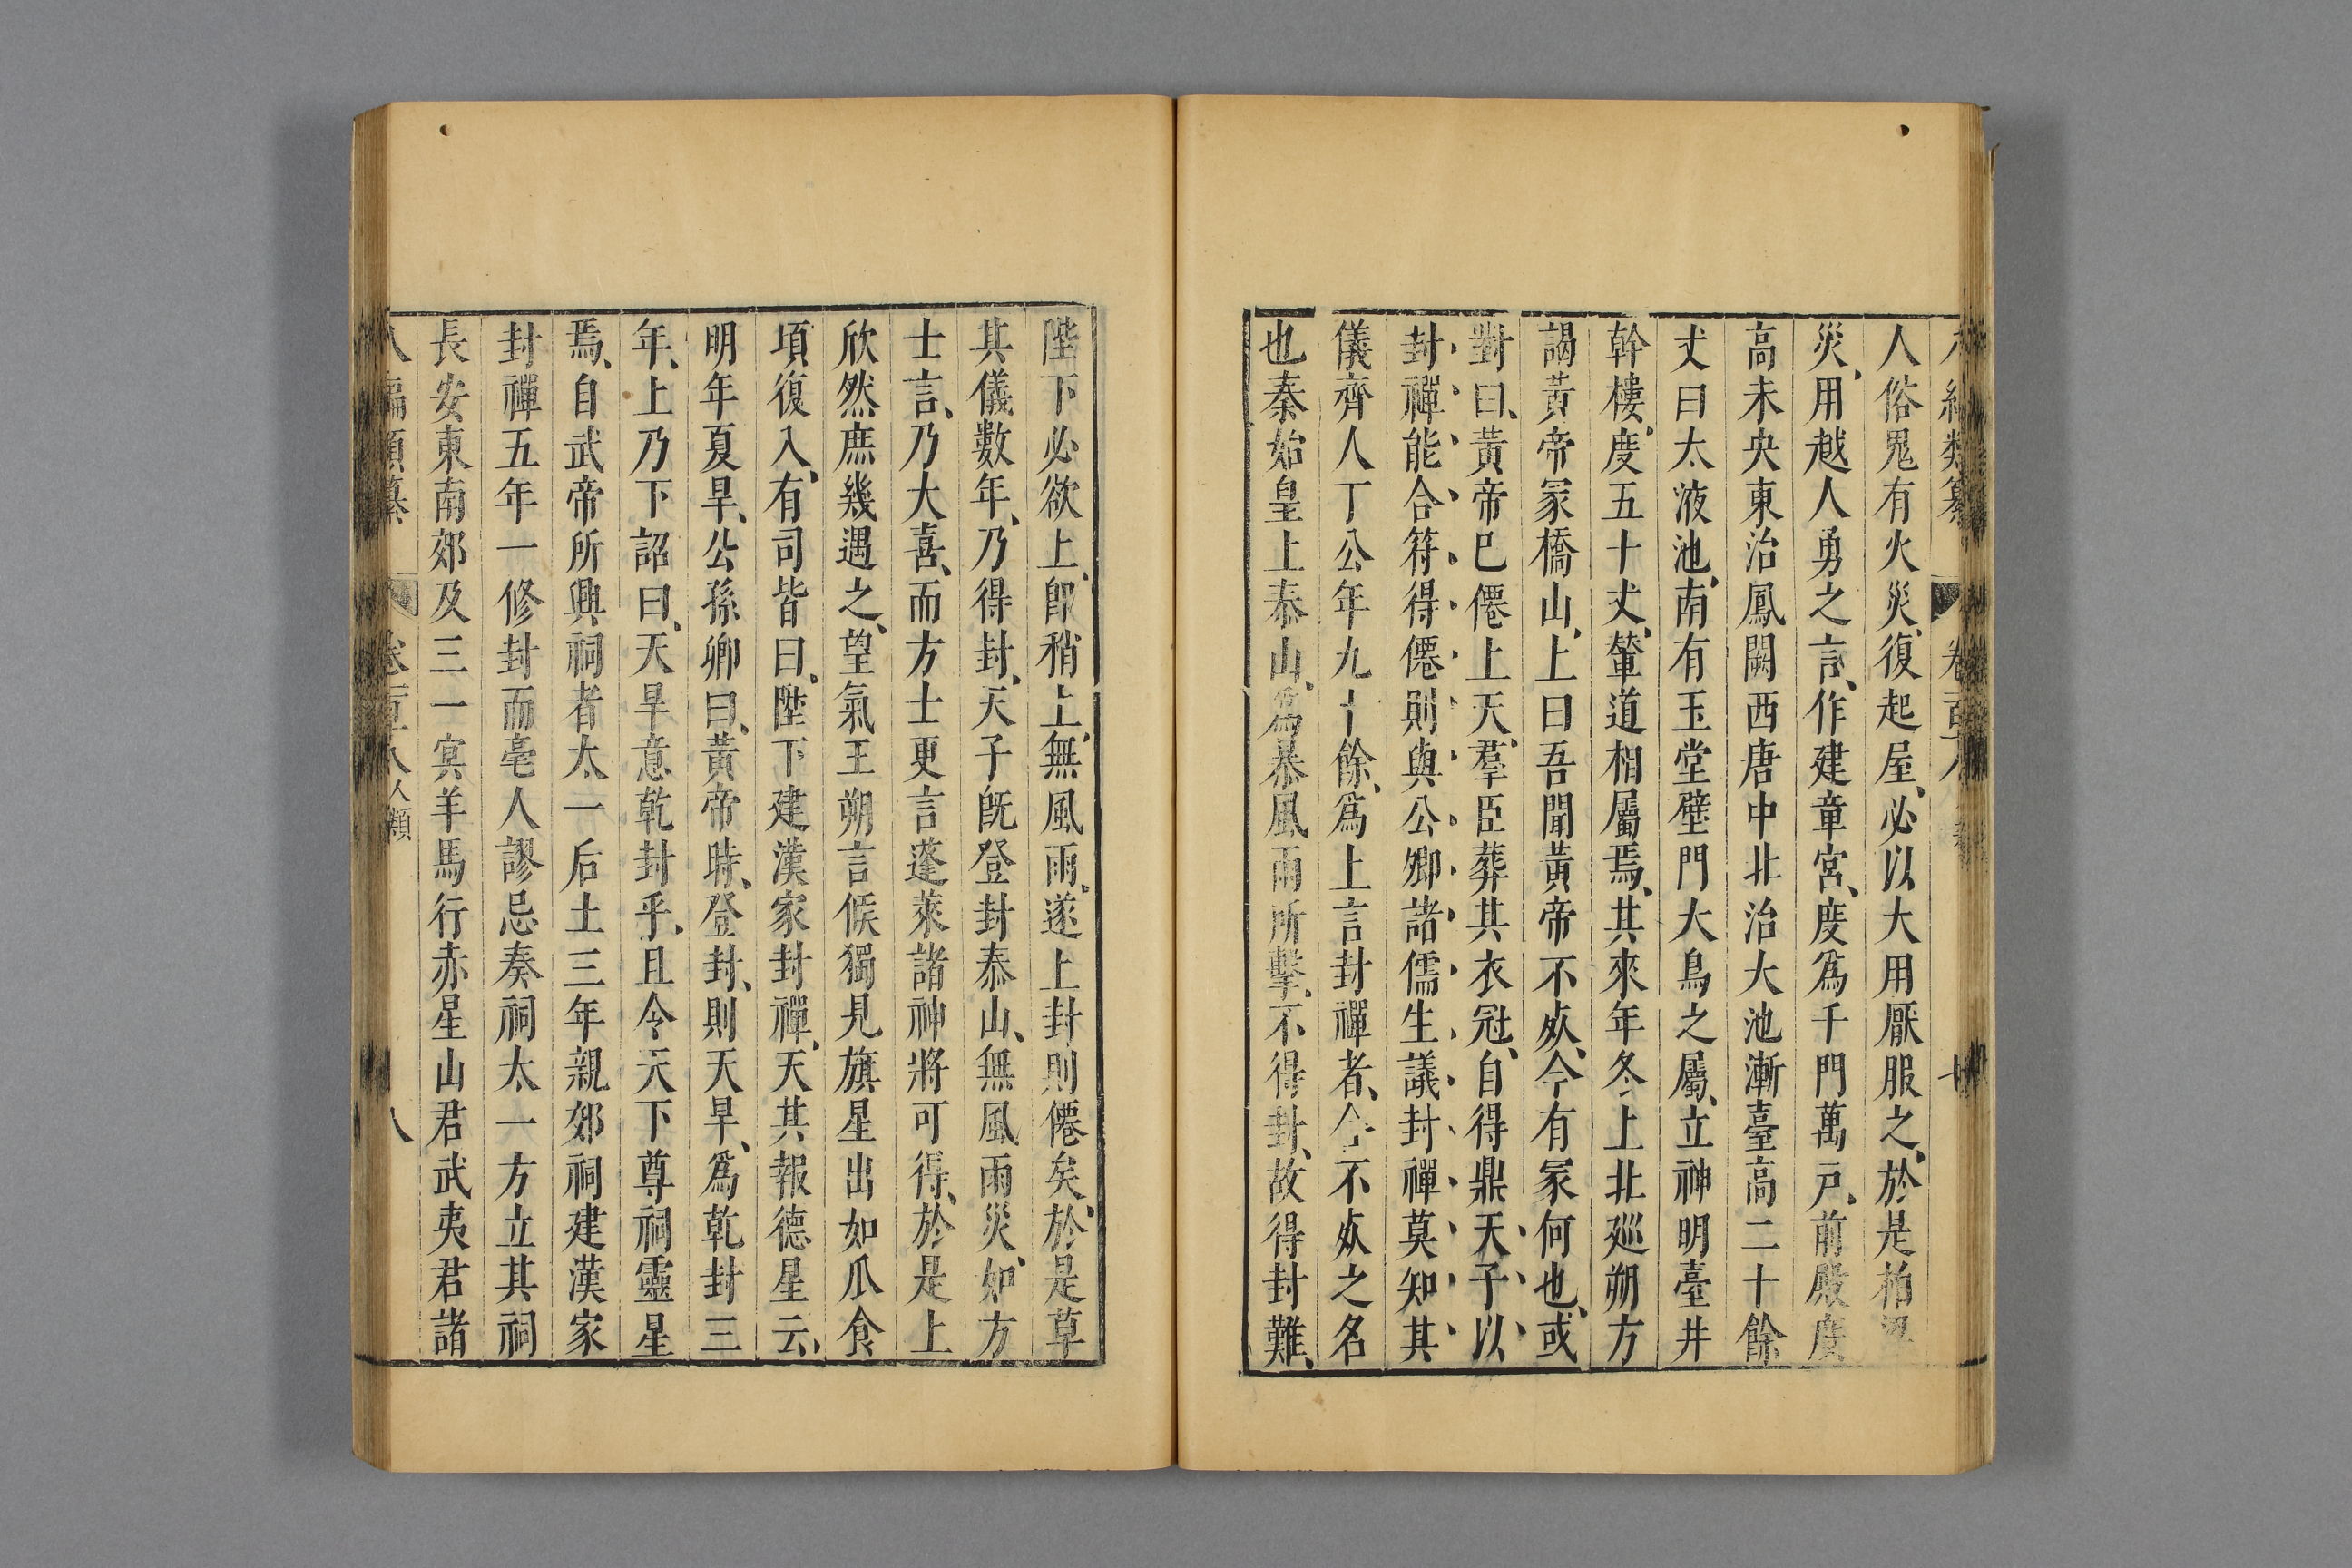 類纂 卷百
人俗鬼有火災、復起屋、必以大用厭服之、於是柏
災、用越人勇之言、作建章宮、度爲千門萬戸、前殿度
高未央東治鳳闕西唐中北治大池漸臺高二十餘
丈曰太液池、南有玉堂壁門大鳥之屬、立神明臺井
幹樓、度五十丈、輦道相屬焉、其來年冬上北廵朔方
謁黃帝冢橋山、上曰吾聞黃帝不㱠、今有冢何也、或
對曰、黃帝已僊上天、羣臣葬其衣冠、自得鼎天子以
封禪能合符得僊則與公卿諸儒生議封禪莫知其
儀齊人丁公年九十餘、爲上言封禪者、今不㱠之名
也秦始皇上泰山、爲暴風雨所擊、不得封、故得封難、
陛下必欲上、卽稍上、無風雨、遂上封則僊矣、於是草
其儀數年、乃得封、天子旣登封泰山、無風雨災、如方
士言、乃大喜、而方士更言蓬萊諸神將可得、於是上
欣然庶幾遇之、望氣王朔言候獨見旗星出如瓜食
項復入、有司皆曰、陛下建漢家封禪、天其報德星云、
明年夏旱、公孫卿曰、黃帝時、登封、則天旱、爲乾封三
年、上乃下詔曰、天旱意乾封乎、且令天下尊祠靈星
焉、自武帝所興祠者太一后土三年親郊祠建漢家
封禪五年一修封而亳人謬忌奏祠太一方立其祠
長安東南郊及三一冥羊馬行赤星山君武夷君諸
八編類纂 卷百八 人類 八